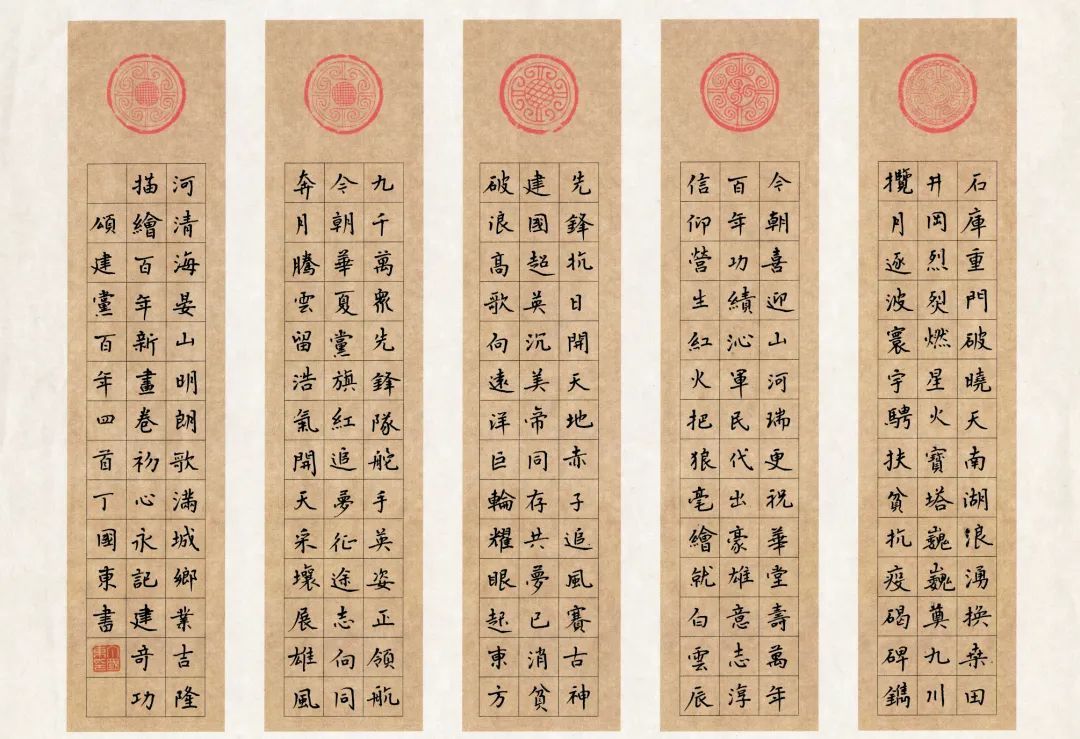 石庫重門破曉天南湖浪湧換桑田
井岡烈烈燃星火寶塔巍巍奠九川
攬月逐波寰宇騁扶貧抗疫碣碑鐫
今朝喜迎山河瑞更祝華堂壽萬年
百年功績沁軍民代出豪雄意志淳
信仰營生紅火把狼毫繪就白雲辰
先鋒抗日開天地赤子追風賽古神
建國超英沉美帝同存共夢已消貧
破浪高歌向遠洋巨輪耀眼起東方
九千萬眾先鋒隊舵手英姿正領航
今朝華夏黨旗紅追夢征途志向同
奔月騰雲留浩氣開天采壤展雄風
河清海晏山明朗歌滿城鄉業吉隆
描繪百年新畫卷初心永記建奇功
頌建黨百年四首丁國東書